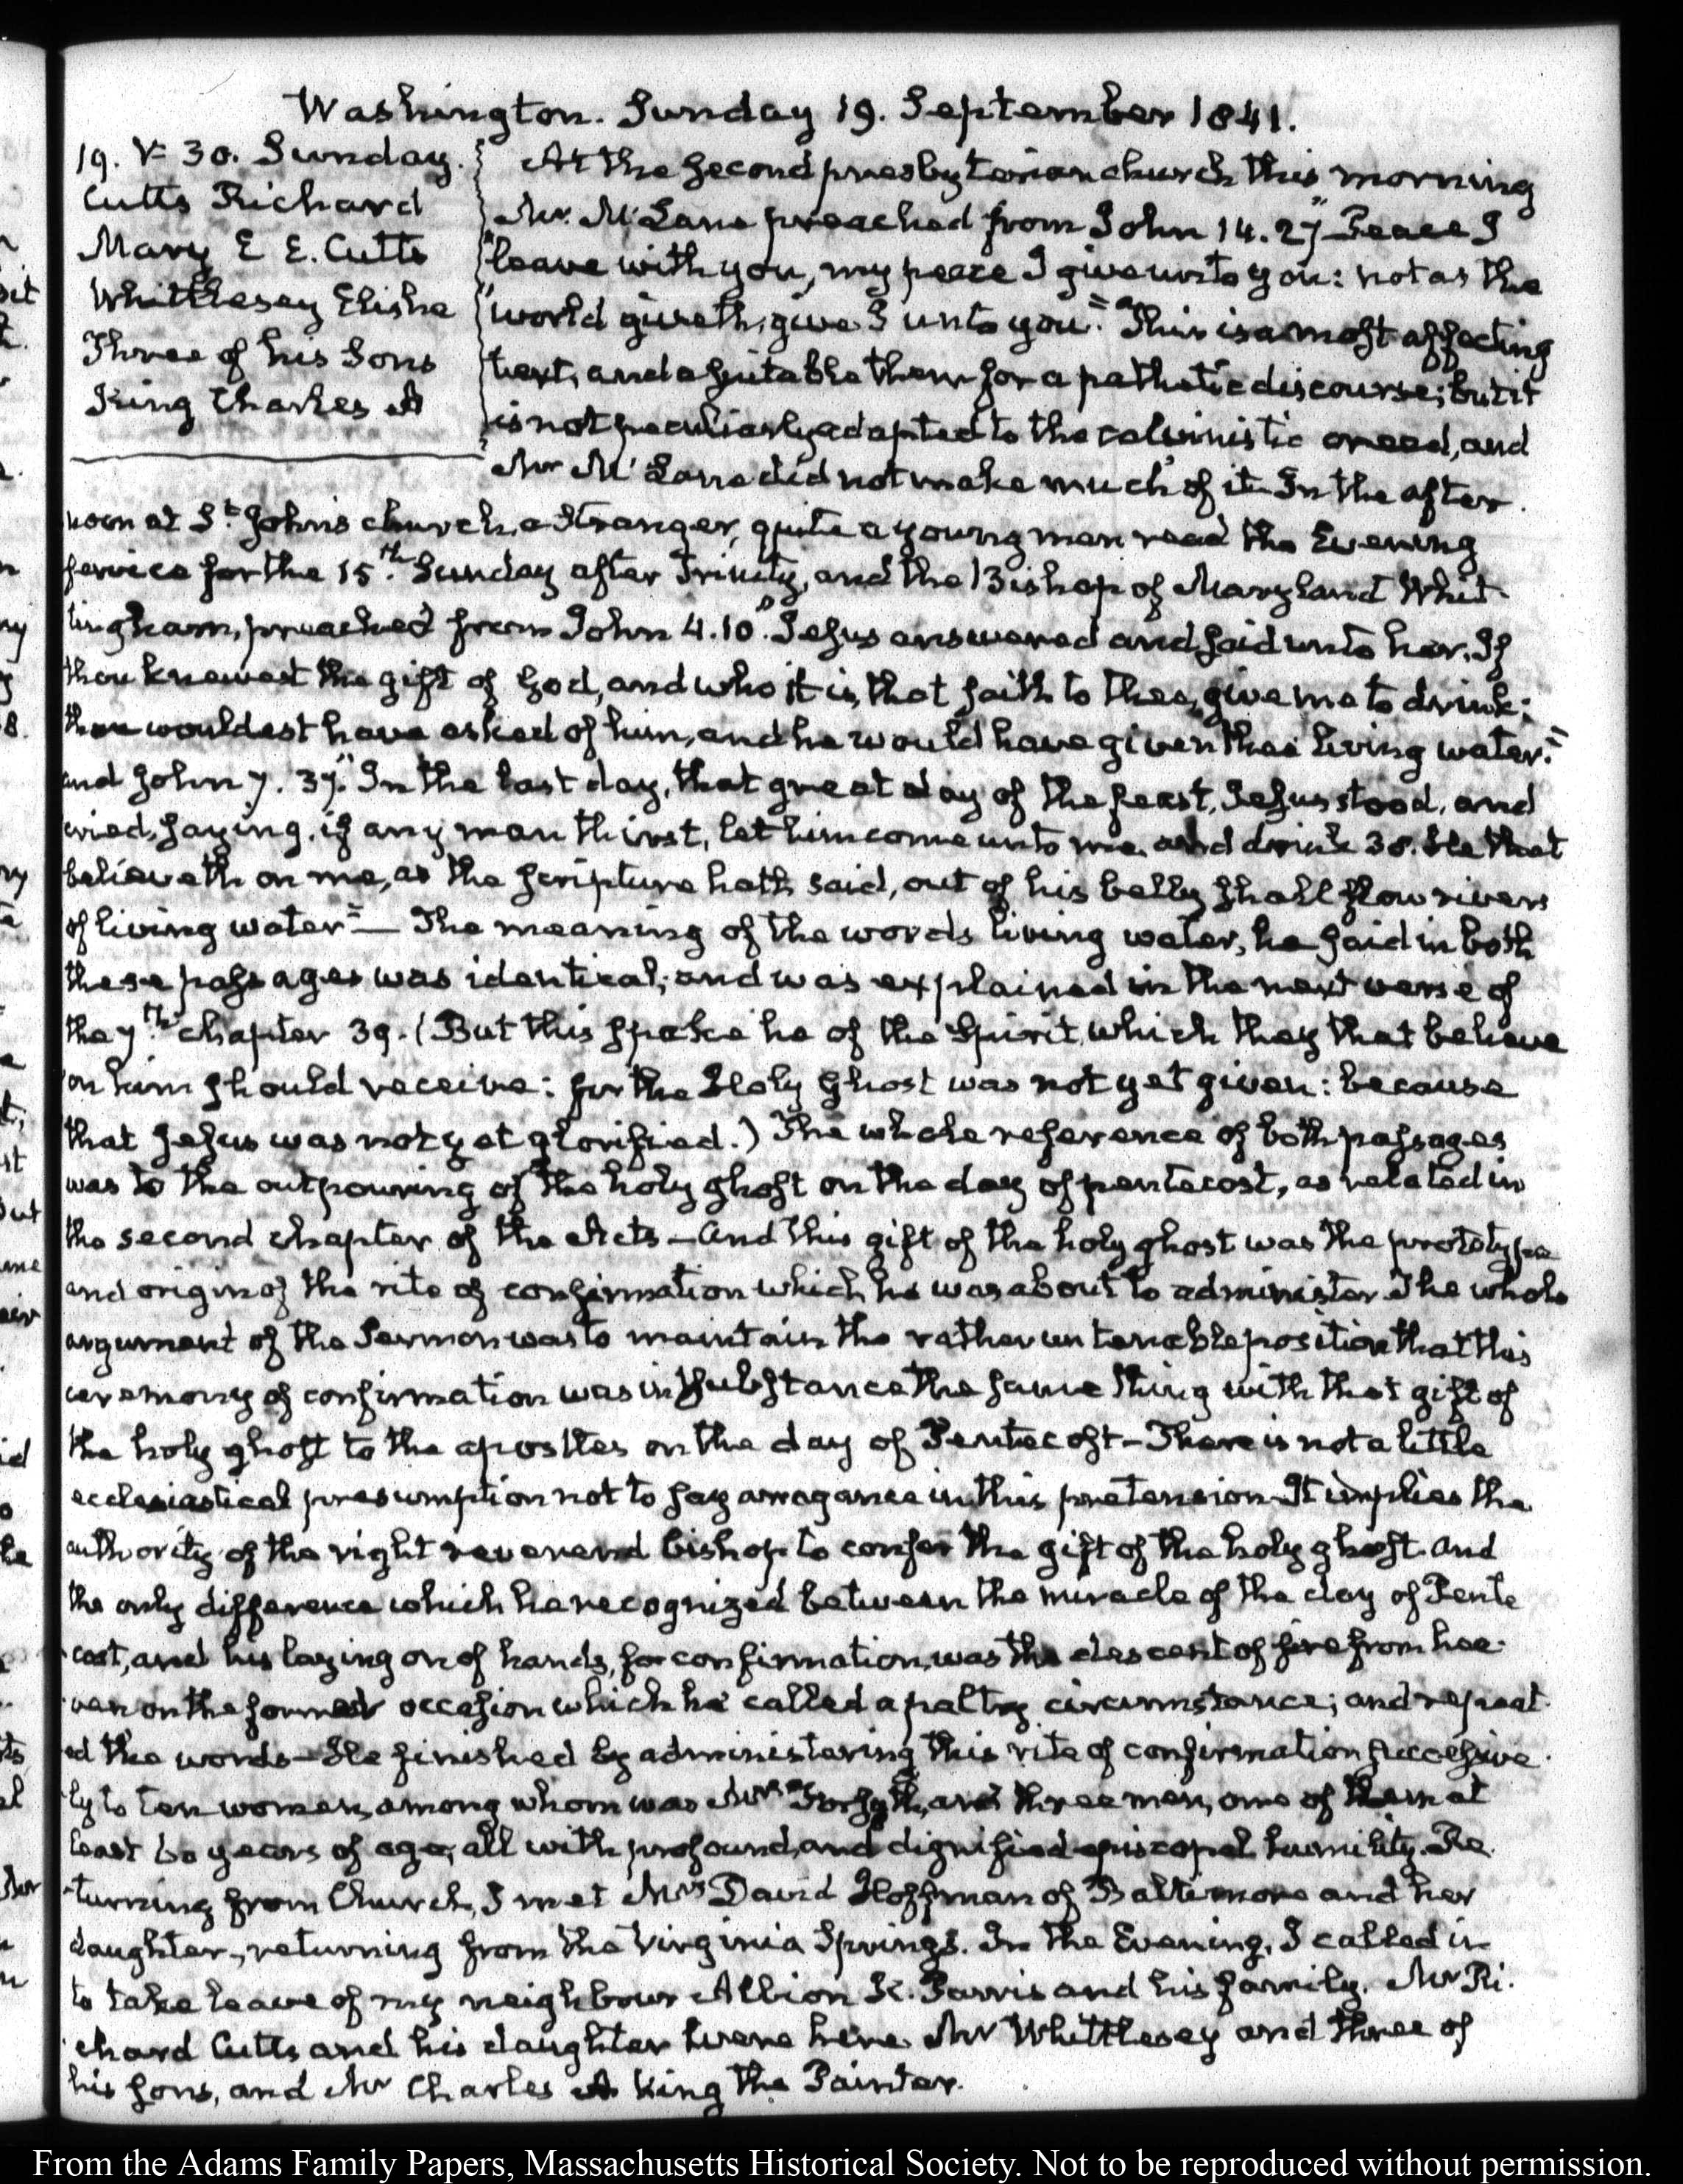 Washington. Sunday 19. September 1841.
19. V: 30. Sunday.
Cutts Richard
Mary E E. Cutts
Whittlesey Elisha
Three of his Sons
King Charles
At the second presbyterian church this morning
Mr. McLane preached from John 14.27 "Peace I
"leave with you, my peace I give unto you: not as the
"world giveth, give I unto you." This is a most affecting
text, and a suitable theme for a pathetic discourse; but it
is not peculiarly adapted to the calvinistic creed, and
Mr McLane did not make much of it. In the after
noon at St. John's church, a Stranger, quite a young man read the Evening
service for the 15th. Sunday after Trinity, and the Bishop of Maryland Whit-
tingham, preached from John 4.10 "Jesus answered and said unto her, If
thou knewest the gift of God, and who it is, that saith to thee, give me to drink;
thou wouldest have asked of him, and he would have given thee living water."
and John 7. 37. "In the last day, that great day of the feast, Jesus stood, and
cried, saying, if any man thirst, let him come unto me and drink 38. He that
believeth on me, as the scripture hath said, out of his belly shall flow rivers
of living water" — The meaning of the words living water, he said in both
these passages was identical; and was explained in the next verse of
the 7th. chapter 39. (But this spake he of the Spirit, which they that believe
on him should receive: for the Holy Ghost was not yet given: because
that Jesus was not yet glorified.) The whole reference of both passages
was to the outpouring of the holy ghost on the day of pentecost, as related in
the second chapter of the Acts — And this gift of the holy ghost was the prototype
and origin of the rite of confirmation which he was about to administer. The whole
argument of the Sermon was to maintain the rather untenable position that this
ceremony of confirmation was in substance the same thing with that gift of
the holy ghost to the apostles on the day of Pentecost — There is not a little
ecclesiastical presumption not to say arrogance in this pretension — It implies the
authority of the right reverend bishop to confer the gift of the holy ghost. And
the only difference which he recognized between the miracle of the day of Pente
cost, and his laying on of hands, for confirmation, was the descent of fire from hea-
ven on the former occasion which he called a paltry circumstance; and repeat-
ed the words — He finished by administering this rite of confirmation successive-
ly to ten women, among whom was Mrs Forsyth, and three men, one of them at
least 60 years of age, all with profound, and dignified episcopal humility. Re-
turning from Church, I met Mrs David Hoffman of Baltimore and her
daughter, returning from the Virginia Springs. In the Evening, I called in
to take leave of my neighbour Albion K. Parris and his family. Mr Ri-
chard Cutts and his daughter were here Mr Whittlesey and three of
his sons, and Mr Charles King the Painter.
From the Adams Family Papers, Massachusetts Historical Society. Not to be reproduced without permission.